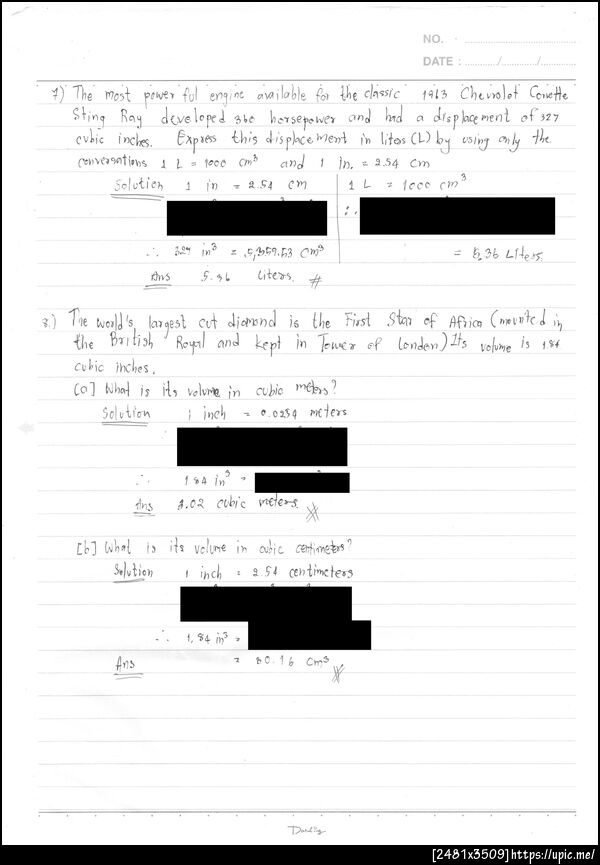 NO. 
DATE : / / 
7) The most powerful engine available for the classic 1963 Chevrolot Corvette
Sting Ray developed 360 horsepower and had a displacement of 327
cubic inches. Express this displacement in liters (L) by using only the
conversations 1 L = 1000 cm³ and 1 in. = 2.54 cm
Solution 1 in = 2.54 cm
1 L = 1000 cm³
∴
∴ 327 in³ = cm³
= 5.36 Liters.
Ans 5.36 liters.
8.) The world's largest cut diamond is the First Star of Africa (mounted in
the British Royal and kept in Tower of London) Its volume is 1.84
cubic inches.
[a] What is its volume in cubic meters?
Solution 1 inch = 0.0254 meters
∴ 1.84 in³ =
Ans 3.02 cubic meters.
[b] What is its volume in cubic centimeters?
Solution 1 inch = 2.54 centimeters
∴ 1.84 in³ =
Ans = 30.16 cm³
[2481x3509]https://upic.me/